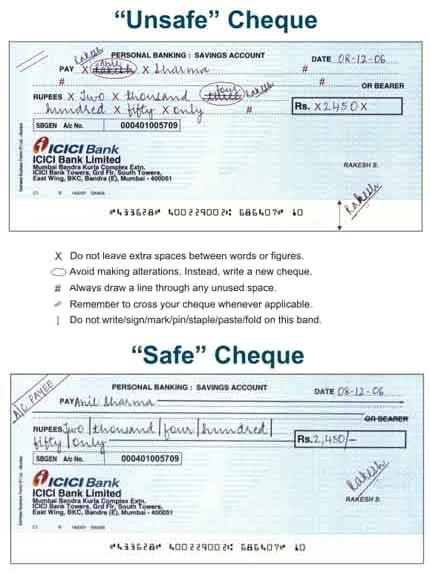 “Unsafe” Cheque
PERSONAL BANKING : SAVINGS ACCOUNT
DATE 08-12-06
Rakesh
PAY X Anil X Sharma #
# # OR BEARER
RUPEES X Two X thousand four three Rakesh
hundred X fifty X only # Rs. X2450X
SBGEN A/c No. 000401005709
ICICI Bank
ICICI Bank Limited
Mumbai Bandra Kurla Complex Extn.
ICICI Bank Towers, Grd Flr, South Towers,
East Wing, BKC, Bandra (E), Mumbai - 400051
RAKESH S.
Rakesh
⑈433628⑈ 400229002⑆ 686407⑈ 10
X Do not leave extra spaces between words or figures.
Avoid making alterations. Instead, write a new cheque.
# Always draw a line through any unused space.
Remember to cross your cheque whenever applicable.
Do not write/sign/mark/pin/staple/paste/fold on this band.
“Safe” Cheque
A/C PAYEE
PERSONAL BANKING : SAVINGS ACCOUNT
DATE 08-12-06
PAY Anil Sharma
OR BEARER
RUPEES Two thousand four hundred
fifty only Rs. 2,450/-
SBGEN A/c No. 000401005709
ICICI Bank
ICICI Bank Limited
Mumbai Bandra Kurla Complex Extn.
ICICI Bank Towers, Grd Flr, South Towers,
East Wing, BKC, Bandra (E), Mumbai - 400051
Rakesh
RAKESH S.
⑈433628⑈ 400229002⑆ 686407⑈ 10